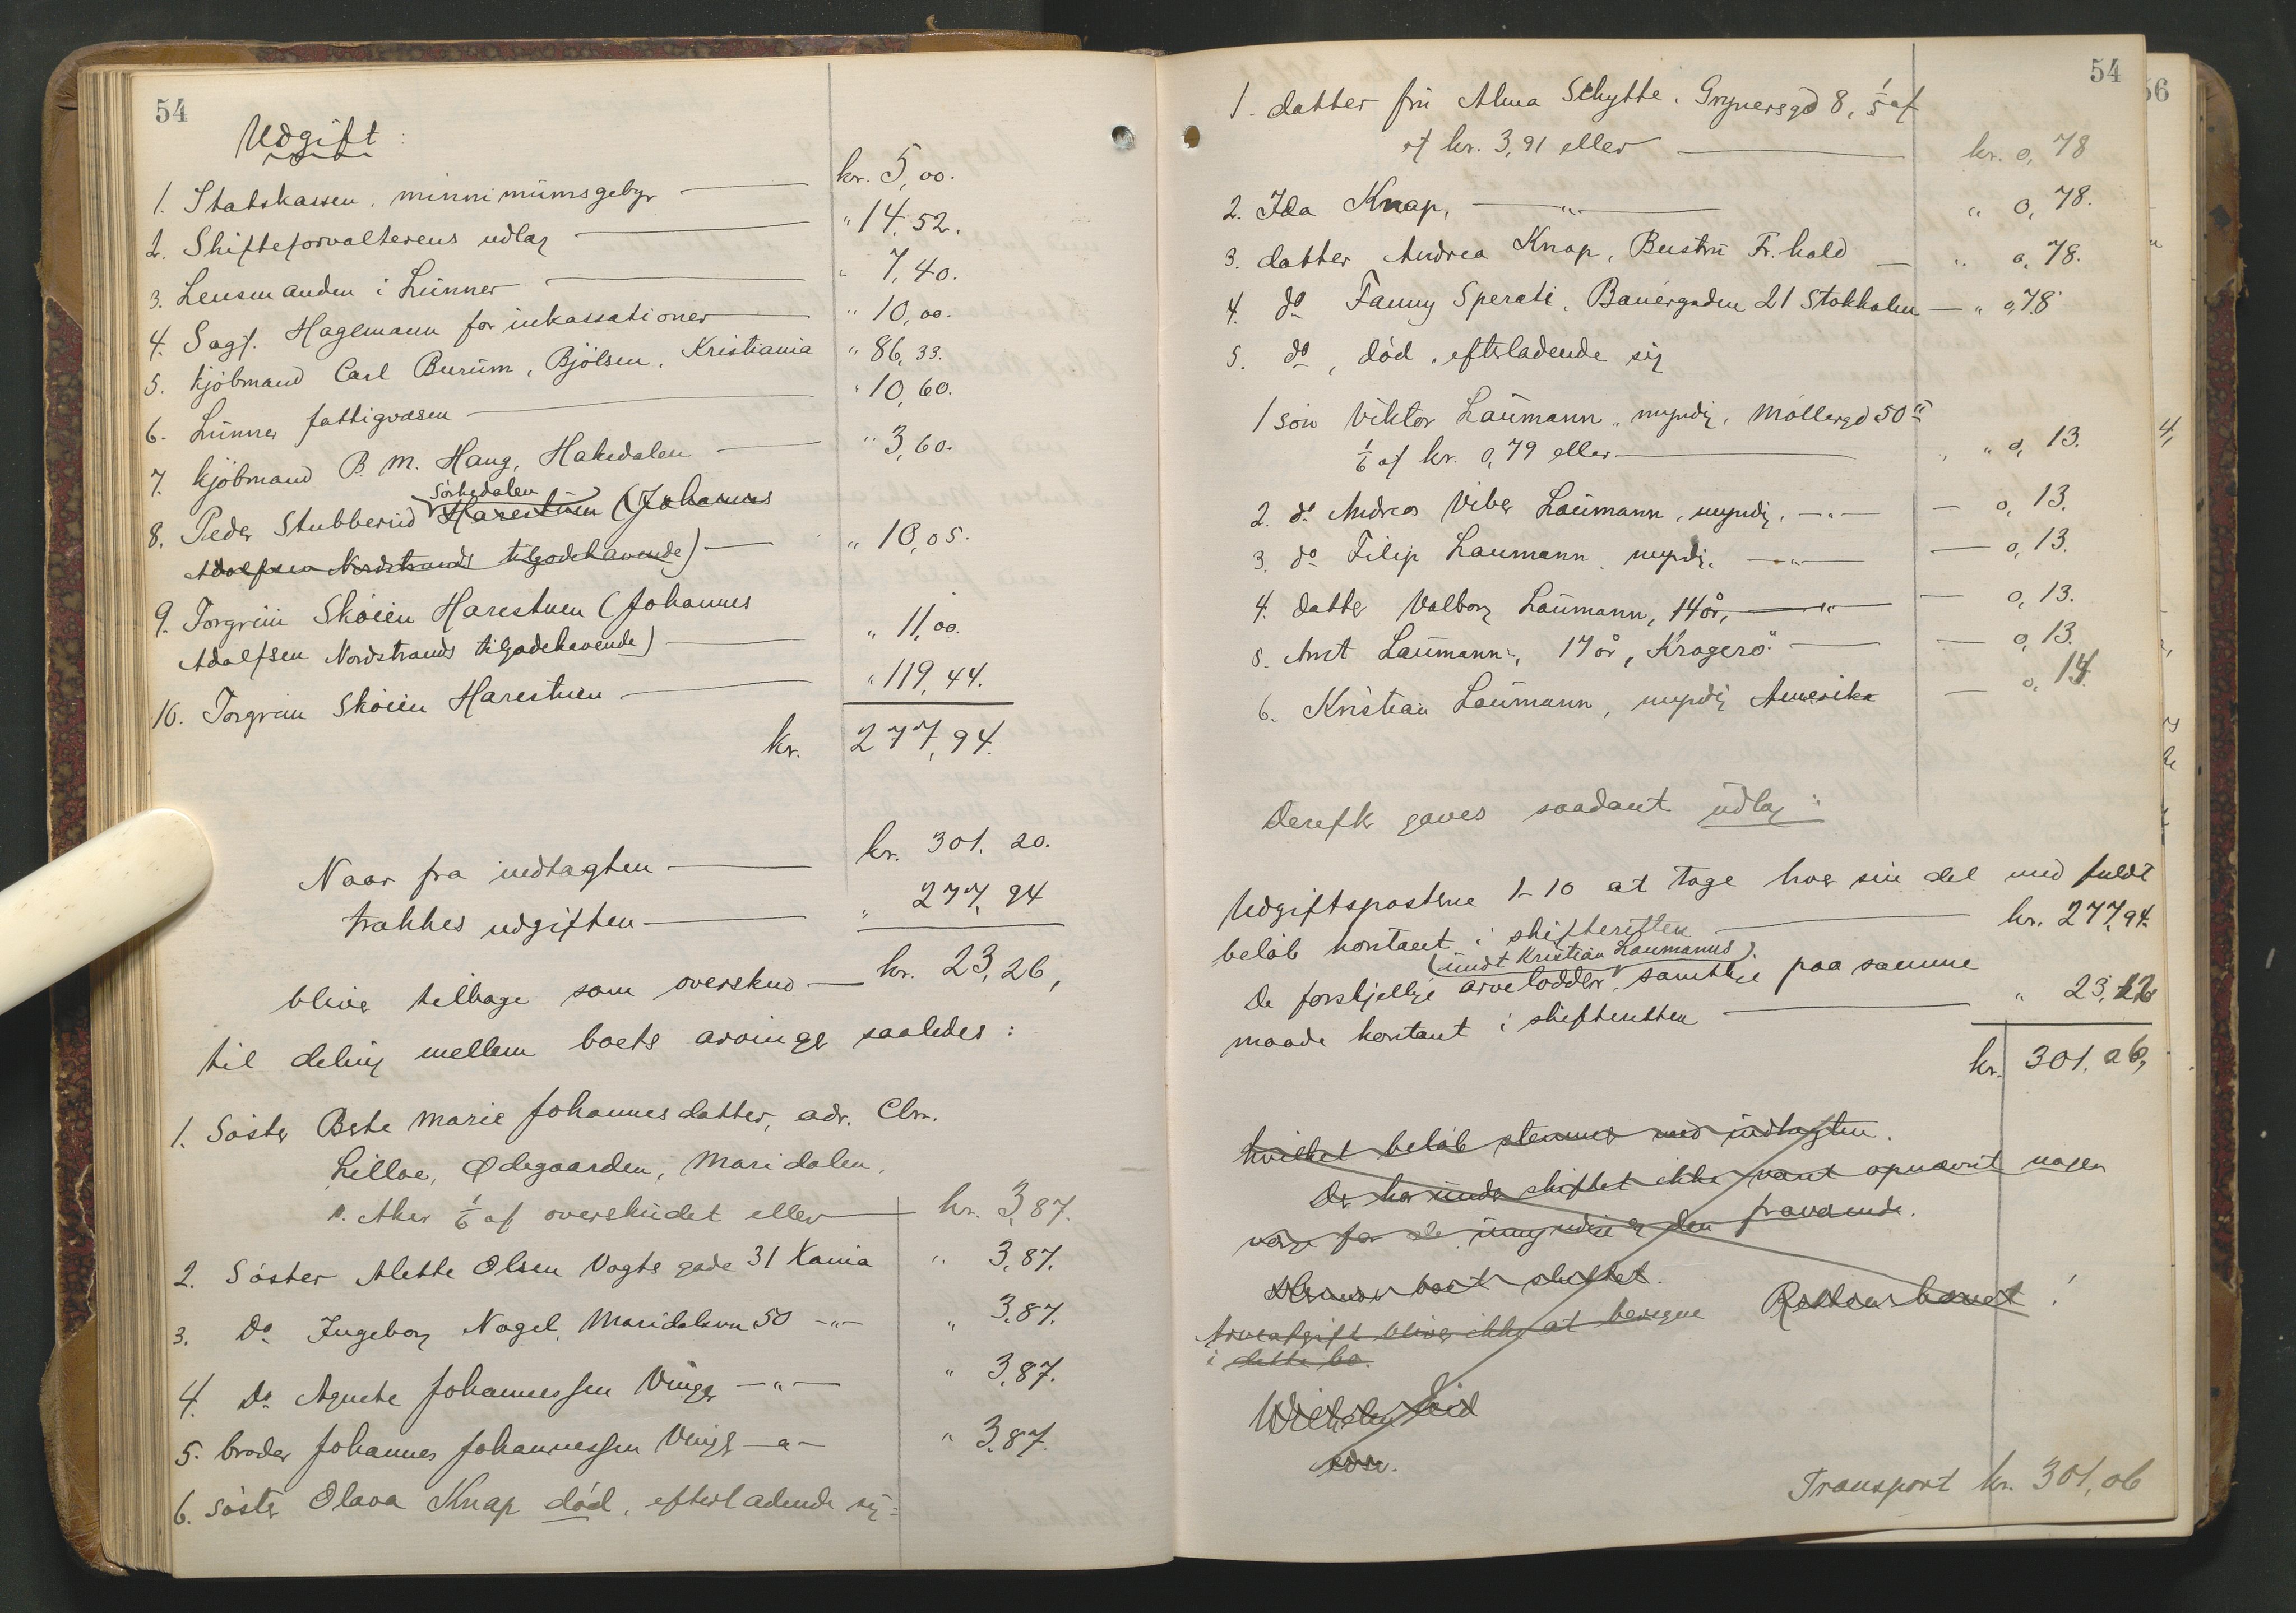 54
Udgift:
1. Statskassen, minnimumsgebyr — kr. 5,00.
2. Skifteforvalterens udlæg — " 14,52.
3. Lensmanden i Lunner — " 7,40.
4. Sagf. Hagemann for inkassationer — " 10,00.
5. Kjöbmand Carl Burum, Bjölsen, Kristiania " 86,33.
6. Lunner fattigvæsen — " 10,60.
7. Kjöbmand B. M. Haug, Hakedalen — " 3,60.
Sörkedalen
8. Peder Stubberud Harestuen (Johannes
Adolfsen Nordstrands tilgodehavende) — " 10,05.
9. Torgrim Skøien Harestuen (Johannes
Adolfsen Nordstrands tilgodehavende) — " 11,00.
10. Torgrim Skøien Harestuen — " 119,44.
kr. 277,94.
Naar fra indtægten — kr. 301.20.
trækkes udgiften — " 277,94
bliver tilbage som overskud — kr. 23,26,
til deling mellem boets arvinger saaledes:
1. Söster Berte Marie Johannesdatter, adr. Chr.
Lilloe, Ødegaarden, Maridalen,
v. Aker 1/6 af overskudet eller — kr. 3,87.
2. Söster Alette Olsen Vogts gade 31 Kania " 3,87.
3. Do Ingeborg Nagel, Maridalsvn 50 —"— " 3,87.
4. Do Agnete Johannessen Vinger —"— " 3,87.
5. broder Johannes Johannessen Vinger —"— " 3,87.
6. söster Olava Knap död, efterladende sig:
54
56
1. datter fru Alma Schytte, Grynersgd 8, 1/5 af
af kr. 3,91 eller — kr. 0,78
2. Ida Knap, —"— " 0,78.
3. datter Andrea Knap, Bustru Fr.hald — " 0,78.
4. do Fanny Sperati, Banérgaden 21 Stokholm — " 0,78
5. do, död, efterladende sig
1 sön Viktor Laumann, myndig, Möllergd 50
1/6 af kr. 0,79 eller — " 0,13.
2. do Andreas Viber Laumann, myndig, —"— — 0,13.
3. do Filip Laumann, myndig. —"— — 0,13.
4. datter Valborg Laumann, 14 år, —"— — 0,13.
5. Arnt Laumann, 17 år, Kragerö — — 0,13.
6. Kristian Laumann, myndig Amerika — 0,14.
Derefter gaves saadant udlæg:
Udgiftsposterne 1–10 at tage hver sin del med fuldt
beløb kontant i skifteretten — kr. 277,94.
(undt Kristian Laumanns)
De forskjellige arvelodder, samtlige paa samme
maade kontant i skifteretten — " 23,12
kr. 301,06,
hvilket beløb stemmer med indtægten.
Der har under skiftet ikke været opnævnt nogen
værge for de umyndige og den fraværende.
Arveafgift bliver ikke at beregne
i dette bo.
Retten hævet!
Transport kr. 301,06